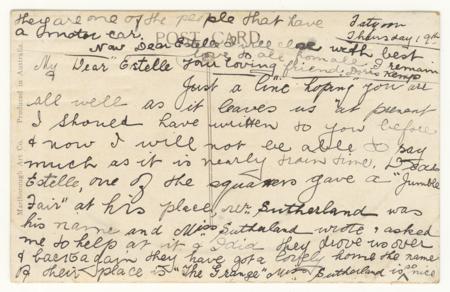 they are one of the people that have
a motor car.
POST CARD
Thursday 19th
Now Dear Estelle I will close with best
love to all from all I remain
Your loving friend, Doris Kemp
My Dear Estelle
Just a line hoping you are
all well as it leaves us at present
I should have written to you before
& now I will not be able to say
much as it is nearly train time,
Estelle, one of the squatters gave a "Jumble
Fair" at his place, Mr. Sutherland was
his name and Miss Sutherland wrote & asked
me to help at it & I did they drove us over
& back again they have got a lovely home the name
of their place is "The Grange" Miss Sutherland is so nice
Marlborough Art Co. Produced in Australia.